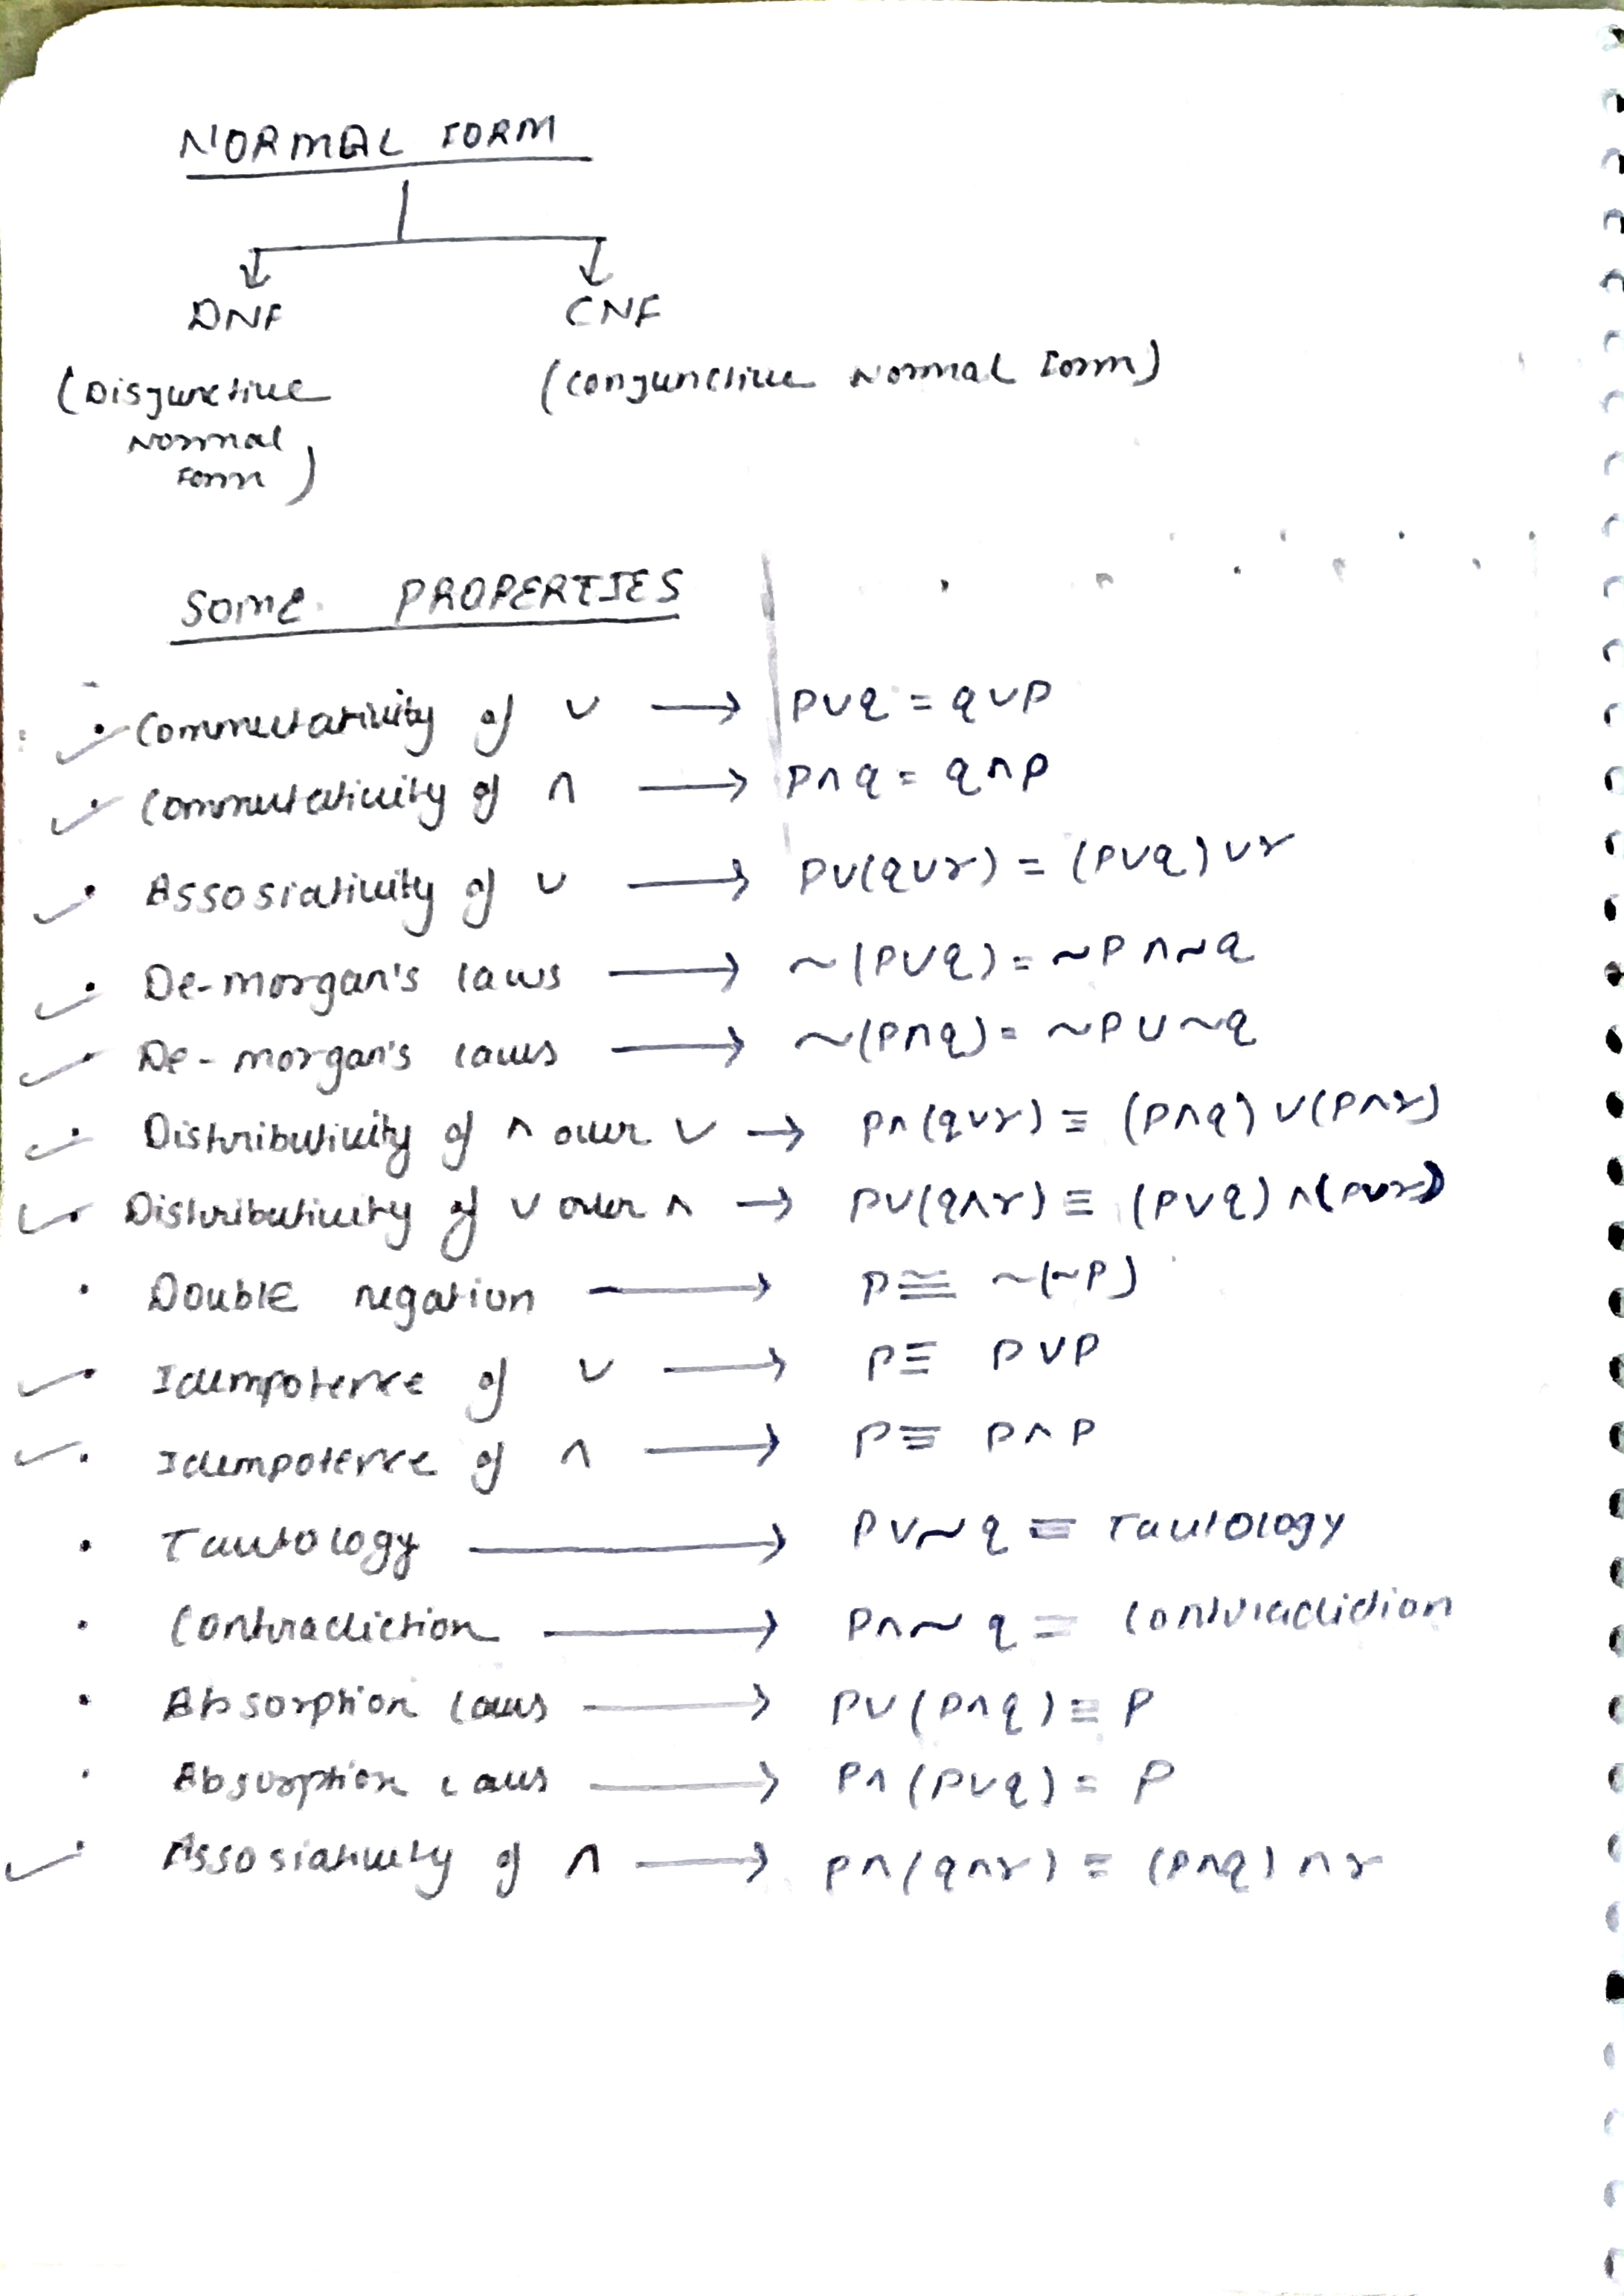 NORMAL FORM
DNF CNF
(Disjunctive (Conjunctive Normal Form)
Normal
Form)
Some PROPERTIES
• Commutativity of ∨ → p∨q = q∨p
• Commutativity of ∧ → p∧q = q∧p
• Assosiativity of ∨ → p∨(q∨r) = (p∨q)∨r
• De-morgan's laws → ~(p∨q) = ~p∧~q
• De-morgan's laws → ~(p∧q) = ~p∨~q
• Distributivity of ∧ over ∨ → p∧(q∨r) ≡ (p∧q)∨(p∧r)
• Distributivity of ∨ over ∧ → p∨(q∧r) ≡ (p∨q)∧(p∨r)
• Double negation → p ≅ ~(~p)
• Idempotence of ∨ → p ≡ p∨p
• Idempotence of ∧ → p ≡ p∧p
• Tautology → p∨~q ≡ Tautology
• Contradiction → p∧~q = Contradidion
• Absorption laws → p∨(p∧q) ≡ p
• Absorption laws → p∧(p∨q) = p
• Assosiativity of ∧ → p∧(q∧r) ≡ (p∧q)∧r